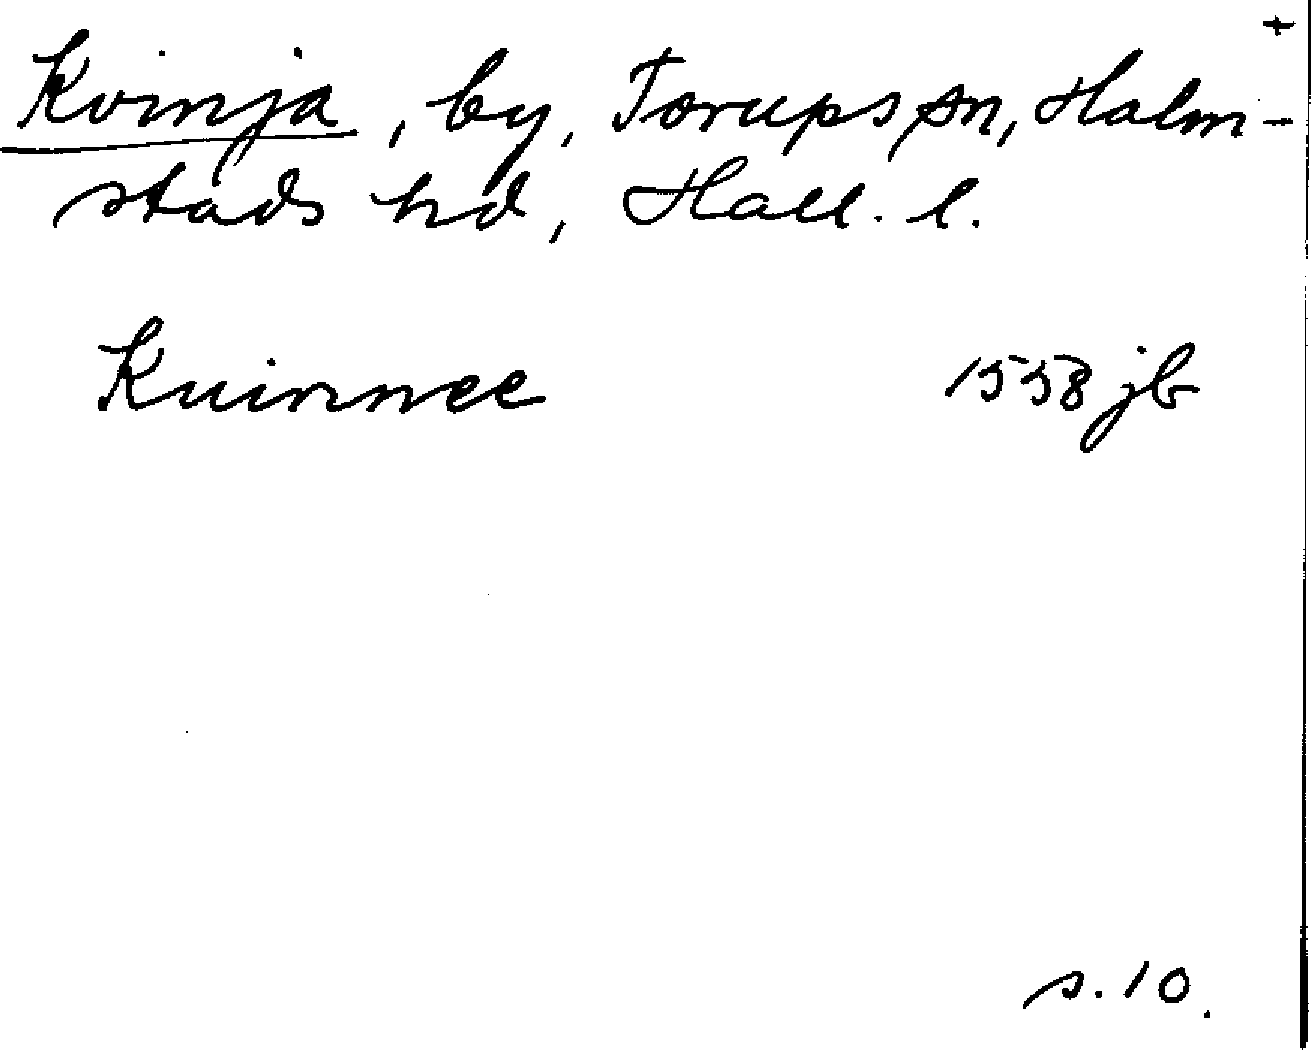 +
Kvinja, by, Torups sn, Halm-
stads hd, Hall. l.
Kuinnee 1558 jb
s. 10.